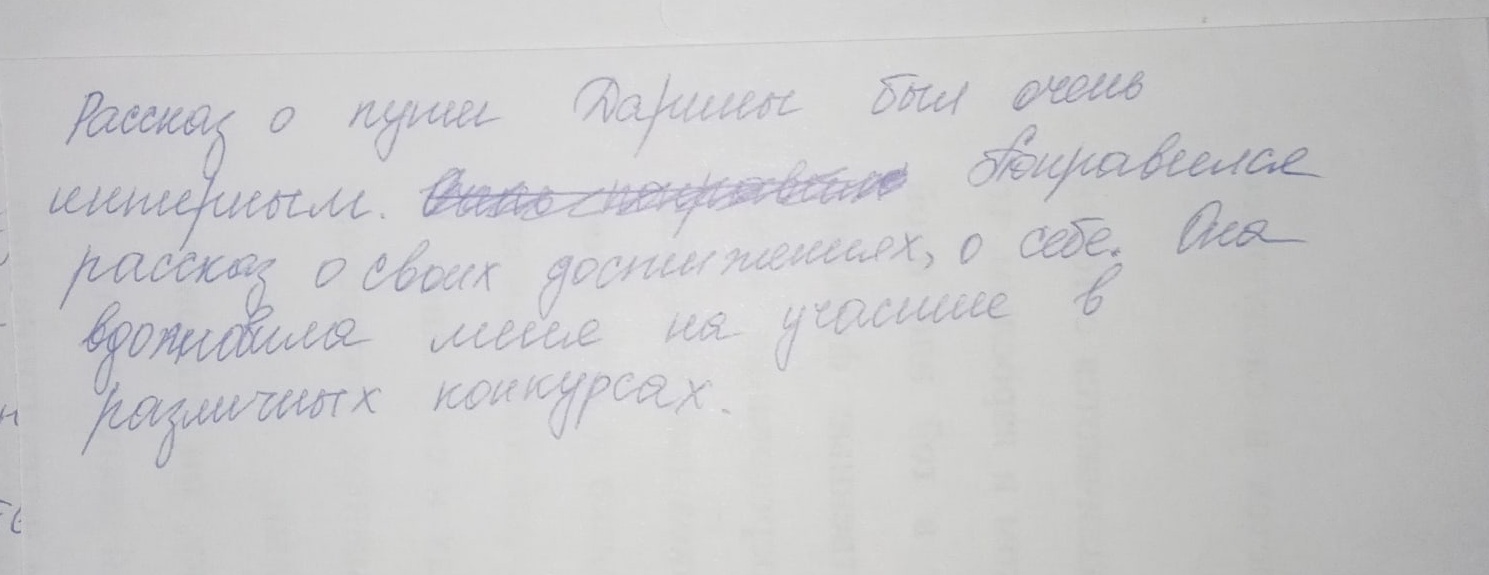 Рассказ о пути Дарины был очень
интерным. Понравился
рассказ о своих достижениях, о себе. Она
вдохновила меня на участие в
различных конкурсах.